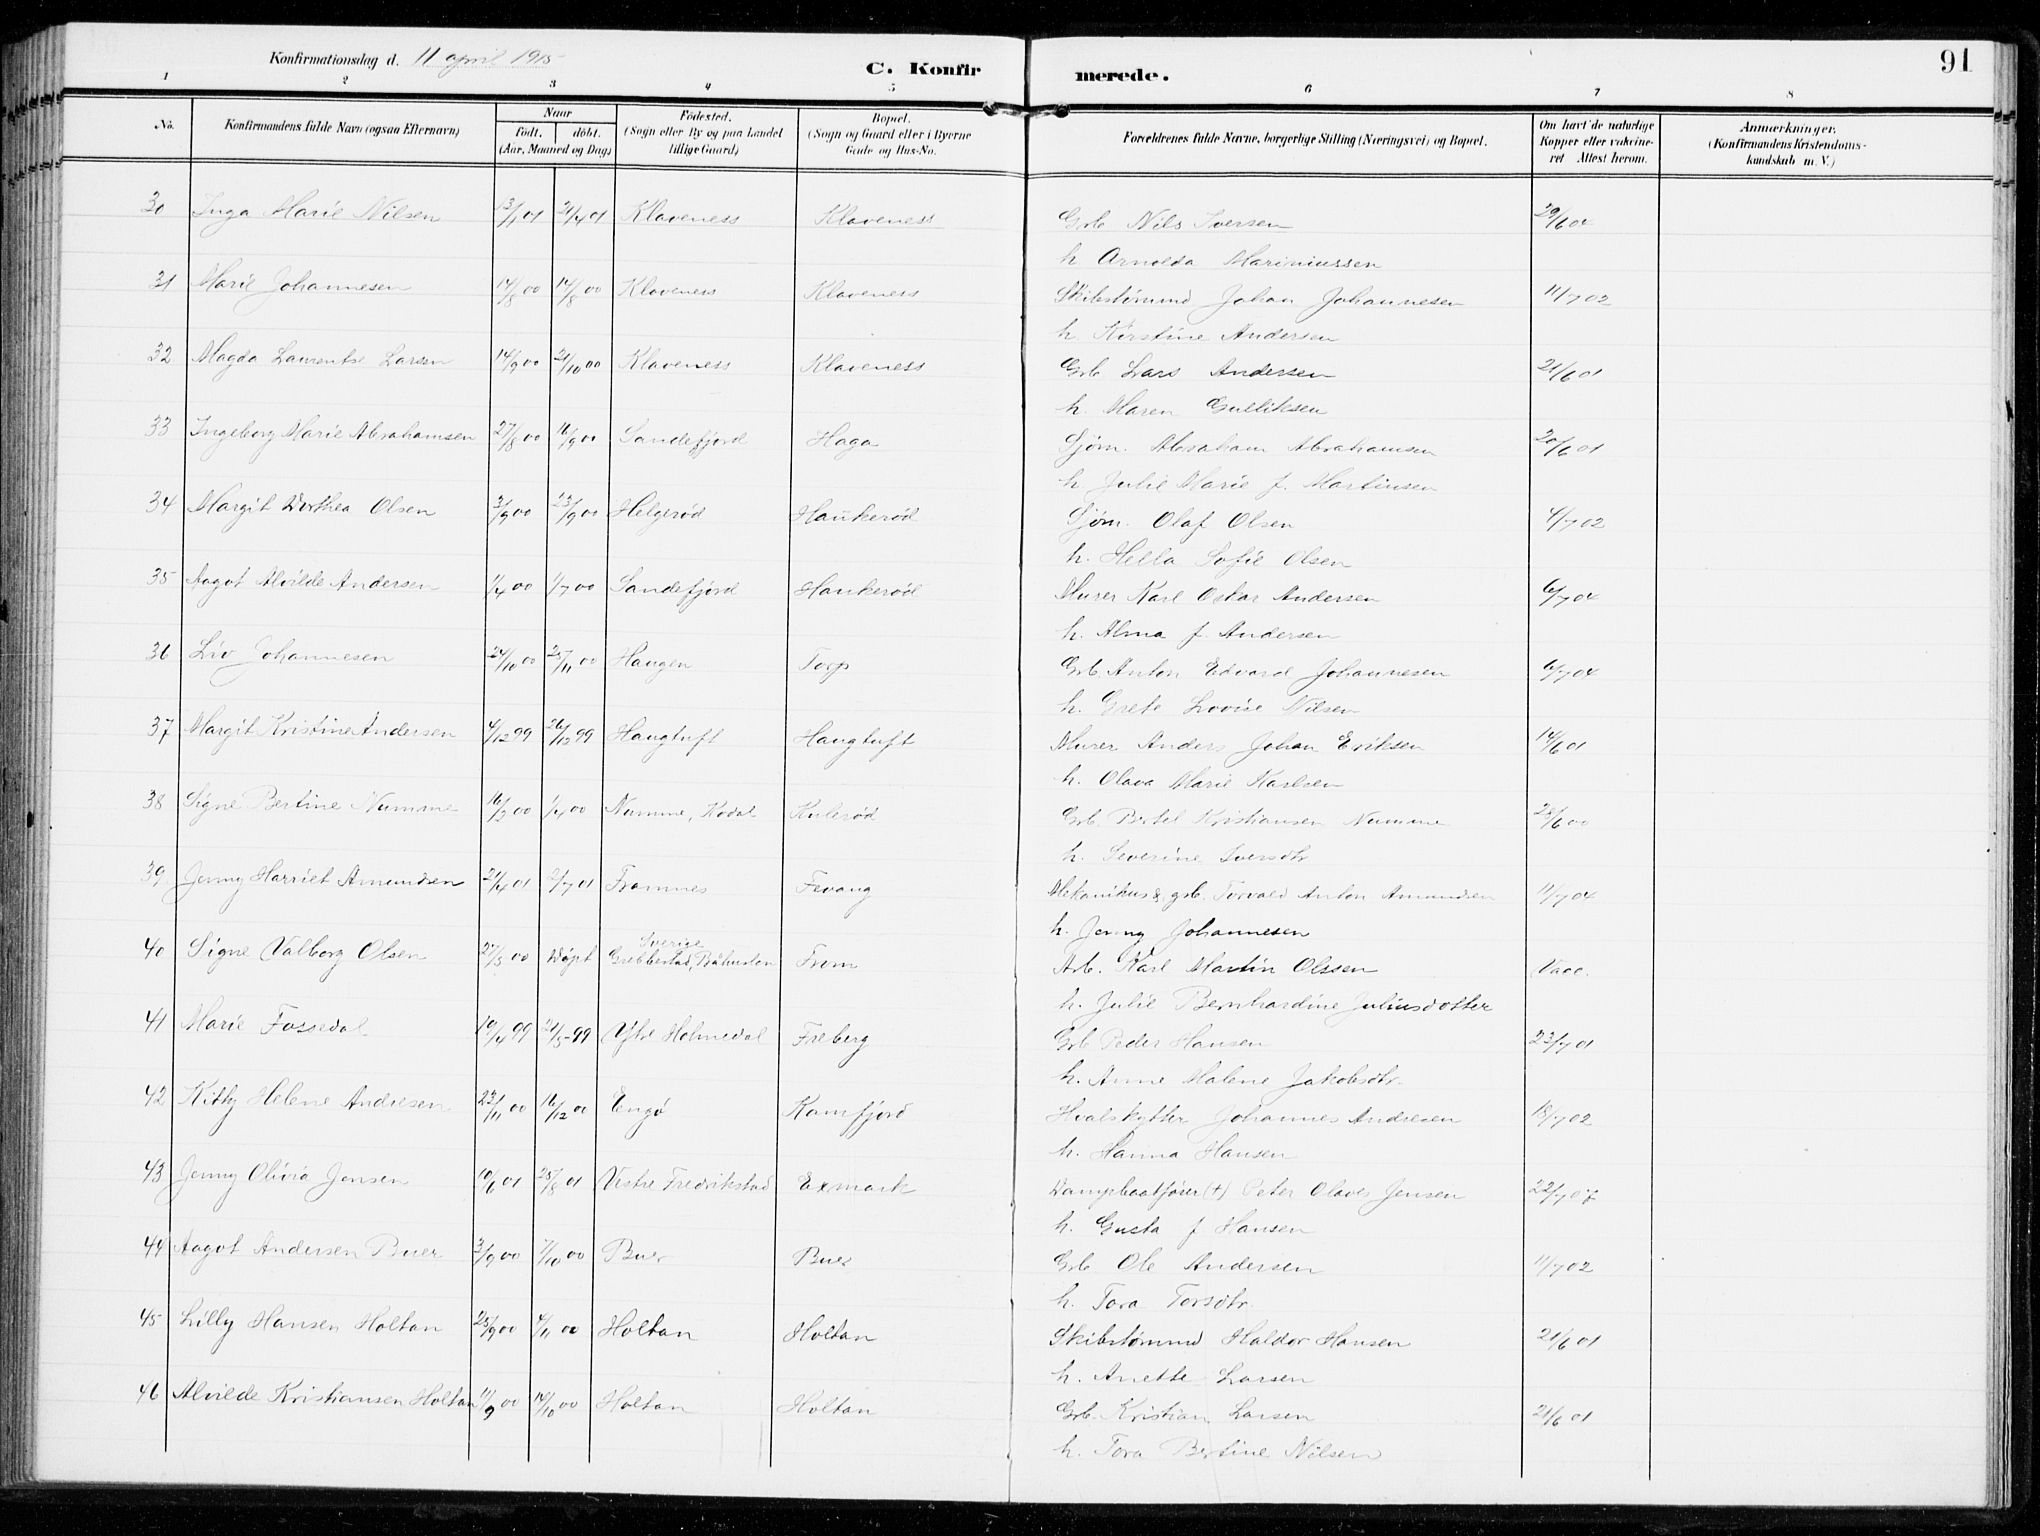 Konfirmationsdag d. 11 april 1915
C. Konfirmerede.
91
1 2 3 4 5 6 7 8
No. Konfirmandens fulde Navn (ogsaa Efternavn) Naar født. døbt. (Aar, Maaned og Dag) Fødested. (Sogn eller By og paa Landet tillige Gaard) Bopæl. (Sogn og Gaard eller i Byerne Gade og Hus-No. Forældrenes fulde Navne, borgerlige Stilling (Næringsvei) og Bopæl. Om havt de naturlige Kopper eller vakcineret Attest herom. Anmærkninger. (Konfirmandens Kristendomskundskab m. V.)
30 Inga Marie Nilsen 13/1 01 21/4 01 Klaveness Klaveness Grb Nils Iversen 29/6 04
h Arnolda Mariniussen
31 Marie Johannesen 14/8 00 14/8 00 Klaveness Klaveness Skibstømmd Johan Johannesen 11/7 02
h. Kirstine Andersen
32 Magda Laurentse Larsen 14/9 00 21/10 00 Klaveness Klaveness Grb Lars Andersen 21/6 01
h. Maren Gulliksen
33 Ingeborg Marie Abrahamsen 27/8 00 16/9 00 Sandefjord Haga Sjøm. Abraham Abrahamsen 20/6 01
h. Julie Marie f. Martinsen
34 Margit Dorthea Olsen 3/9 00 23/9 00 Helgerød Haukerød Sjøm. Olaf Olsen 4/7 02
h. Hella Sofie Olsen
35 Aagot Alvilde Andersen 1/4 00 1/7 00 Sandefjord Haukerød Murer Karl Oskar Andersen 6/7 04
h. Alma f. Andersen
36 Liv Johannesen 24/10 00 25/11 00 Haugen Torp Grb. Anton Edvard Johannesen 6/7 04
h. Grete Lovise Nilsen
37 Margit Kristine Andersen 4/12 99 26/12 99 Haugtuft Haugtuft Murer Anders Johan Eriksen 14/6 01
h. Olava Marie Karlsen
38 Signe Bertine Numme 16/2 00 1/4 00 Numme, Kodal Kulerød Grb. Bertel Kristiansen Numme 28/6 00
h. Severine Iversdtr
39 Jenny Harriet Amundsen 21/4 01 2/7 01 Framnes Fevang Mekanikus & grb. Torvald Anton Amundsen 11/7 04
h. Jenny Johannesen
40 Signe Valborg Olsen 27/5 00 Døpt Sverige Grebbestad, Båhuslän From Arb. Karl Martin Olssen Vacc.
h. Julie Bernhardine Juliusdotter
41 Marie Fossedal 10/4 99 21/5 99 Ytre Holmedal Freberg Grb Peder Hansen 23/7 01
h. Anne Malene Jakobsdtr.
42 Kitty Helene Andresen 23/11 00 16/12 00 Engø Kamfjord Hvalskytter Johannes Andresen 18/7 02
h. Hanna Hansen
43 Jenny Olivia Jensen 10/6 01 25/8 01 Vestre Fredrikstad Exmark Dampbaatfører (+) Peter Olaves Jensen 22/7 07
h. Gusta f. Hansen
44 Aagot Andersen Buer 3/9 00 7/10 00 Buer Buer Grb Ole Andersen 11/7 02
h. Tora Torsdtr.
45 Lilly Hansen Holtan 25/9 00 4/11 00 Holtan Holtan Skibstømmd Haldor Hansen 21/6 01
h. Anette Larsen
46 Alvilde Kristiansen Holtan 11/9 00 14/10 00 Holtan Holtan Grb. Kristian Larsen 21/6 01
h. Tora Bertine Nilsen